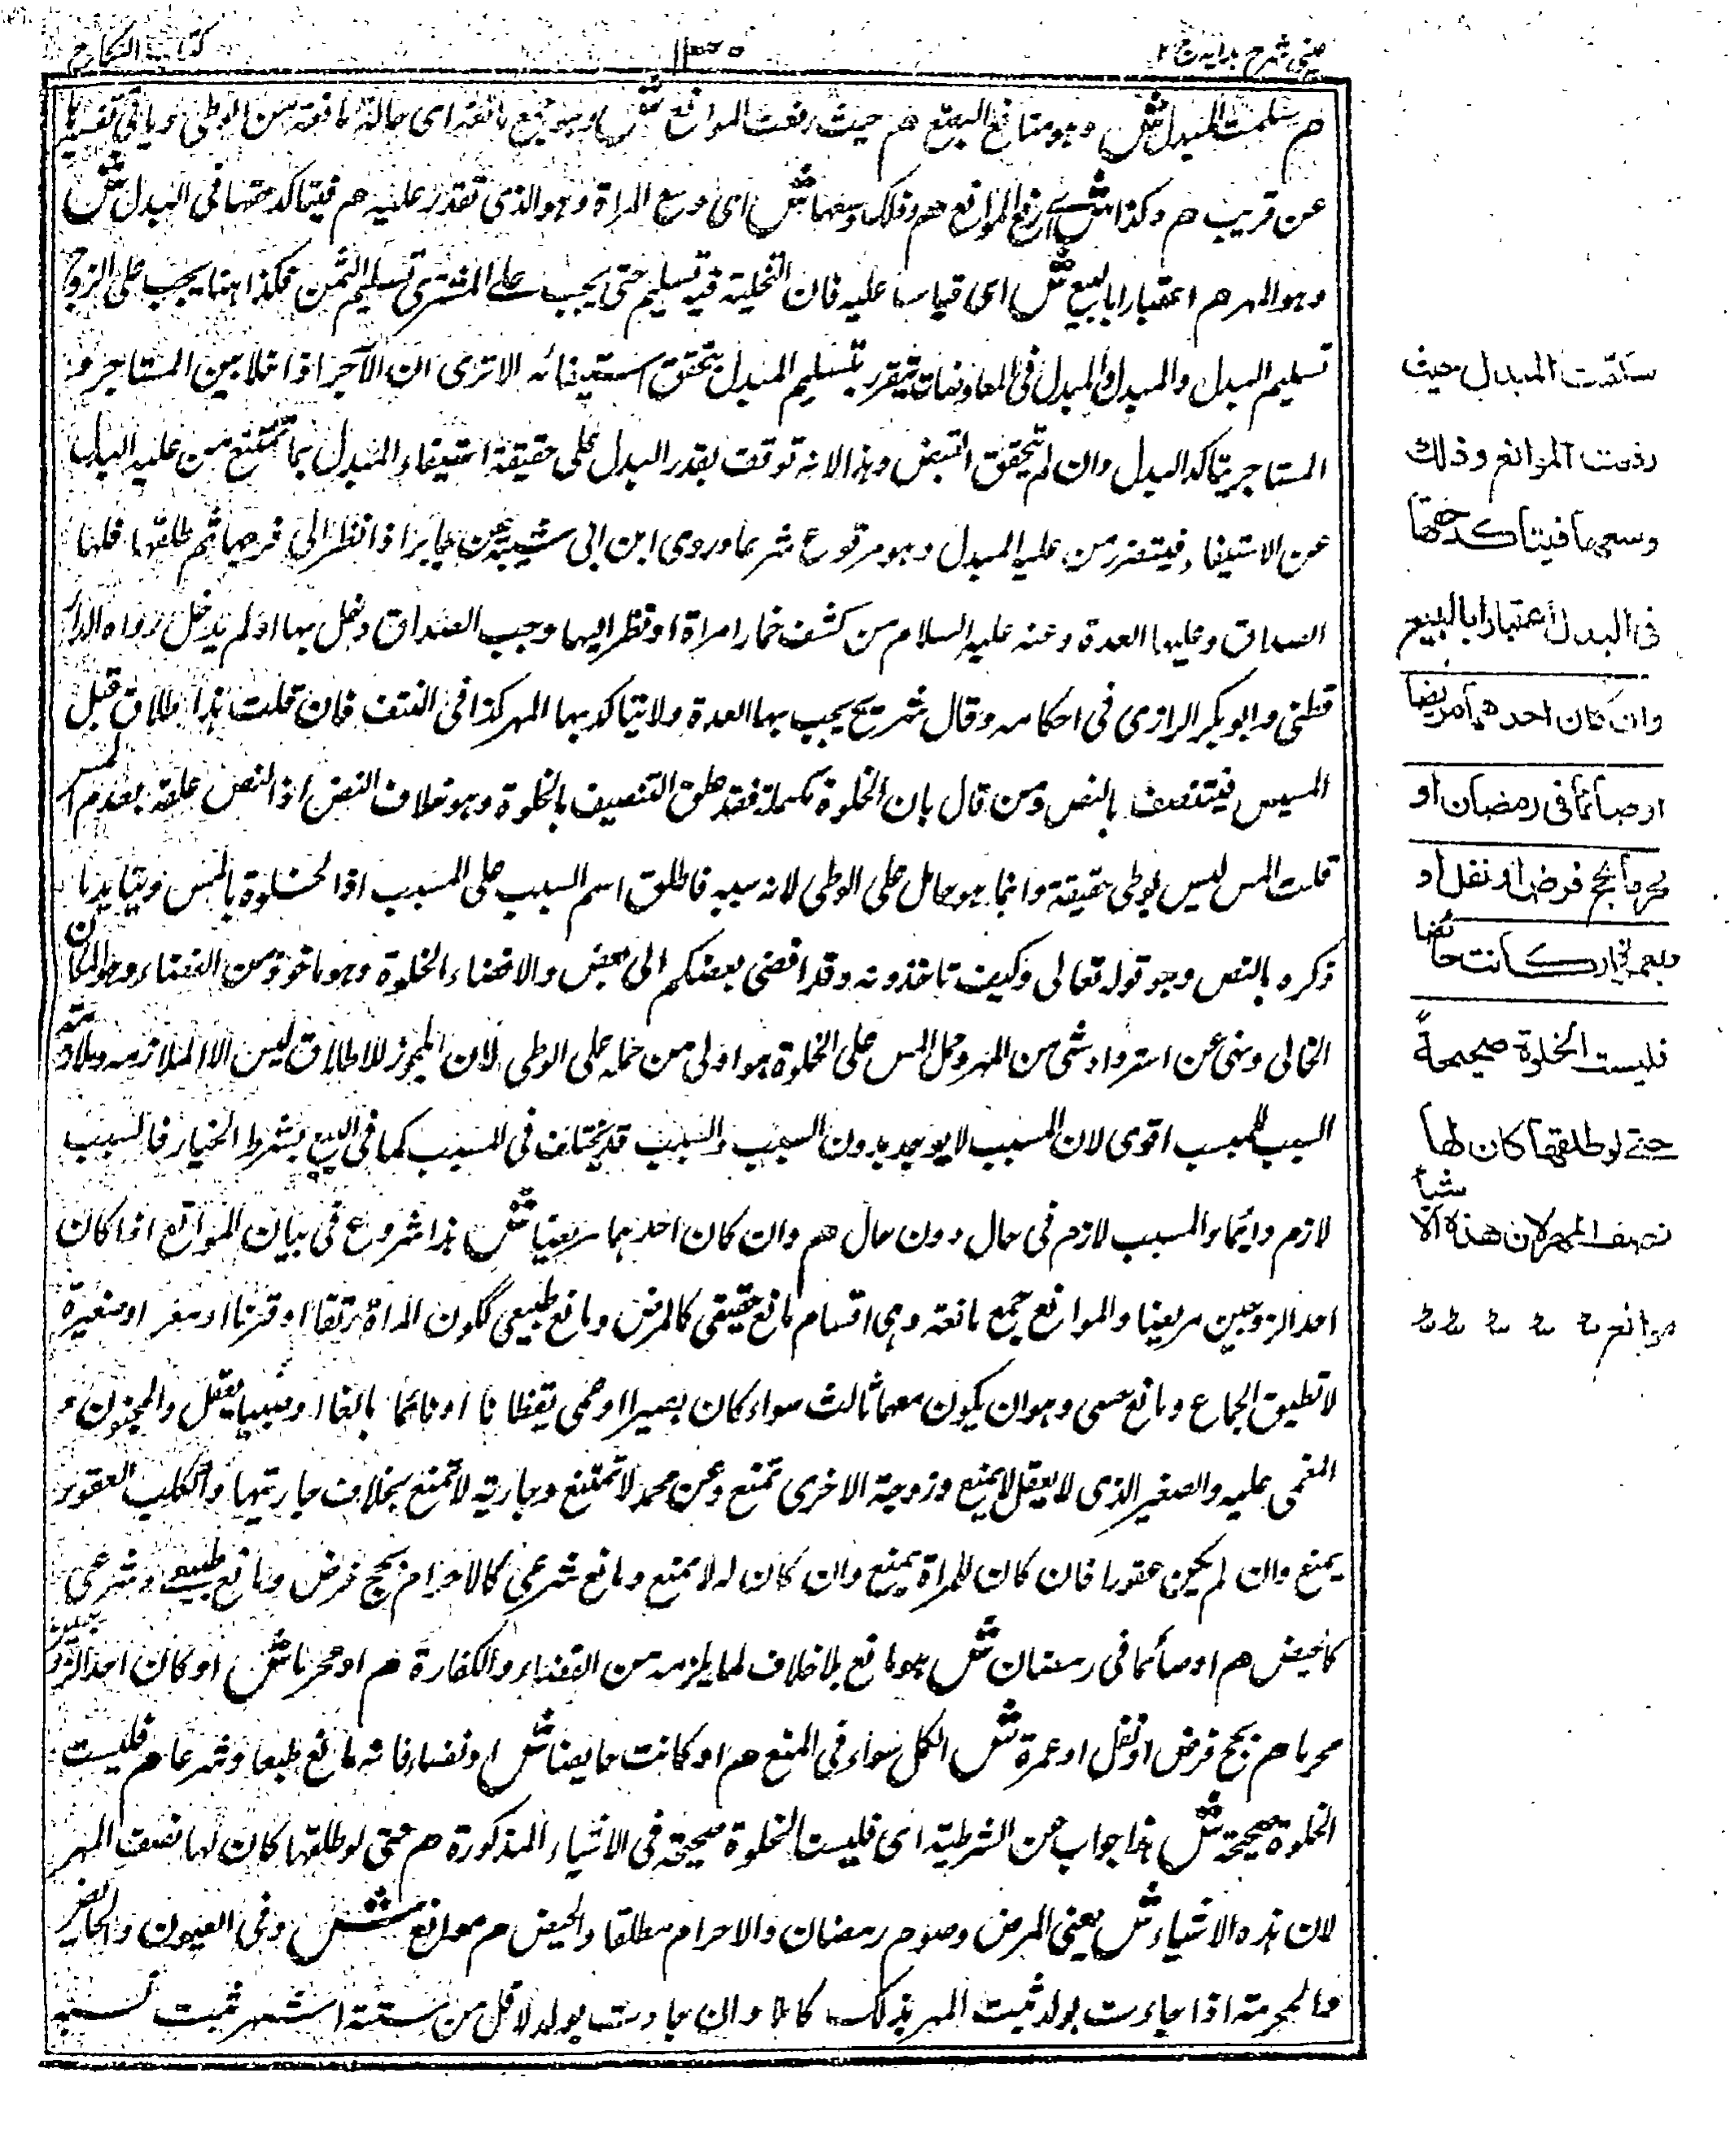 عینی شرح ہدایہ ج ۲
کتاب النکاح
م سلمت المبدل ش وہو منافع البضع م حیث رفعت الموانع ش وہو جمع مانعۃ ای حالۃ مانعۃ من الوطی ویاتی تفسیرہا
عن قریب م وکذا ش ای رفع الموانع م وذلک وسعہا ش ای وسع المراۃ وہو الذی تقدر علیہ م فیتاکد حقہا فی البدل ش
وہو المہر م اعتبارا بالبیع ش ای قیاسا علیہ فان التخلیۃ فیہ تسلیم حتی یجب علی المشتری تسلیم الثمن فکذا ہنا یجب علی الزوج
تسلیم البدل والمبدل والبدل فی المعاوضات یتقرر بتسلیم المبدل بتحقق استیفائہ الا تری ان الآجر اذا خلا بین المستاجر و
المستاجر یتاکد البدل وان لم یتحقق القبض وہذا لانہ توقف بقدر البدل علی حقیقۃ استیفاء المبدل بما تمتنع من علیہ البدل
عن الاستیفاء فیتضرر من علیہ المبدل وہو مرفوع شرعا وروی ابن ابی شیبۃ عن جابر اذا نظر الی فرجہا ثم طلقہا فلہا
الصداق وعلیہا العدۃ وعنہ علیہ السلام من کشف خمار امراۃ او نظر الیہا وجب الصداق دخل بہا او لم یدخل رواہ الدار
قطنی وابو بکر الرازی فی احکامہ وقال شریح یجب بہا العدۃ ولا یتاکد بہا المہر کذا فی النتف فان قلت ہذا طلاق قبل
المسیس فیتنصف بالنص ومن قال بان الخلوۃ مکملۃ فقد علق التنصیف بالخلوۃ وہو خلاف النص اذ النص علقہ بعدم المس
قلت المس لیس بوطی حقیقۃ وانما ہو حامل علی الوطی لانہ سببہ فاطلق اسم السبب علی المسبب اذا الخلوۃ بالمس ویتاید بما
ذکرہ بالنص وہو قولہ تعالی وکیف تاخذونہ وقد افضی بعضکم الی بعض والافضاء الخلوۃ وہو ماخوذ من الفضاء وہو المکان
الخالی ونہی عن استرداد شی من المہر وحمل المس علی الخلوۃ ہو اولی من حملہ علی الوطی لان المجوز للاطلاق لیس الا الملازمۃ وملازمۃ
السبب للمسبب اقوی لان المسبب لا یوجد بدون السبب والسبب قد یختلف فی المسبب کما فی البیع بشرط الخیار فالسبب
لازم دائما والمسبب لازم فی حال دون حال م وان کان احدہما مریضا ش ہذا شروع فی بیان الموانع اذا کان
احد الزوجین مریضا والموانع جمع مانعۃ وہی اقسام مانع حقیقی کالمرض ومانع طبیعی ککون المراۃ رتقا او قرنا او صغر او صغیرۃ
لا تطیق الجماع ومانع حسی وہو ان یکون معہما ثالث سواء کان بصیرا او عمی یقظانا او نائما بالغا او صبیا یعقل والمجنون و
المغمی علیہ والصغیر الذی لا یعقل لا یمنع وزوجۃ الاخری تمنع وعن محمد لا تمتنع وجاریۃ لا تمنع بخلاف جاریتہا والکلب العقور
یمنع وان لم یکن عقورا فان کان للمراۃ یمنع وان کان لہ لا یمنع ومانع شرعی کالاحرام بحج فرض ومانع طبیعی وشرعی
کالحیض م او صائما فی رمضان ش ہو مانع بلا خلاف لما یلزمہ من القضاء والکفارۃ م او محرما ش او کان احد الزوجین
محرما م بحج فرض او نفل او عمرۃ ش الکل سواء فی المنع م او کانت حایضا ش او نفساء فانہ مانع طبعا وشرعا م فلیست
الخلوۃ صحیحۃ ش ہذا جواب عن الشرطیۃ ای فلیست الخلوۃ صحیحۃ فی الاشیاء المذکورۃ م حتی لو طلقہا کان لہا نصف المہر
لان ہذہ الاشیاء ش یعنی المرض وصوم رمضان والاحرام مطلقا والحیض م موانع ش وفی العیون والحایض
والمحرمۃ اذا جاءت بولد ثبت المہر بذلک کاملا وان جاءت بولد لاقل من ستۃ اشہر ثبت نسبہ
سلمت المبدل حیث
رفعت الموانع وذلك
وسعہا فیتاکد حقہا
فی البدل اعتبارا بالبیع
وان کان احدهما مریضا
او صائما فی رمضان او
محرما بحج فرض او نفل او
بعمرۃ او کانت حائضا
فلیست الخلوة صحیحةً
حتی لو طلقہا کان لہا
نصف المہر لان هذه الاشیاء
موانع